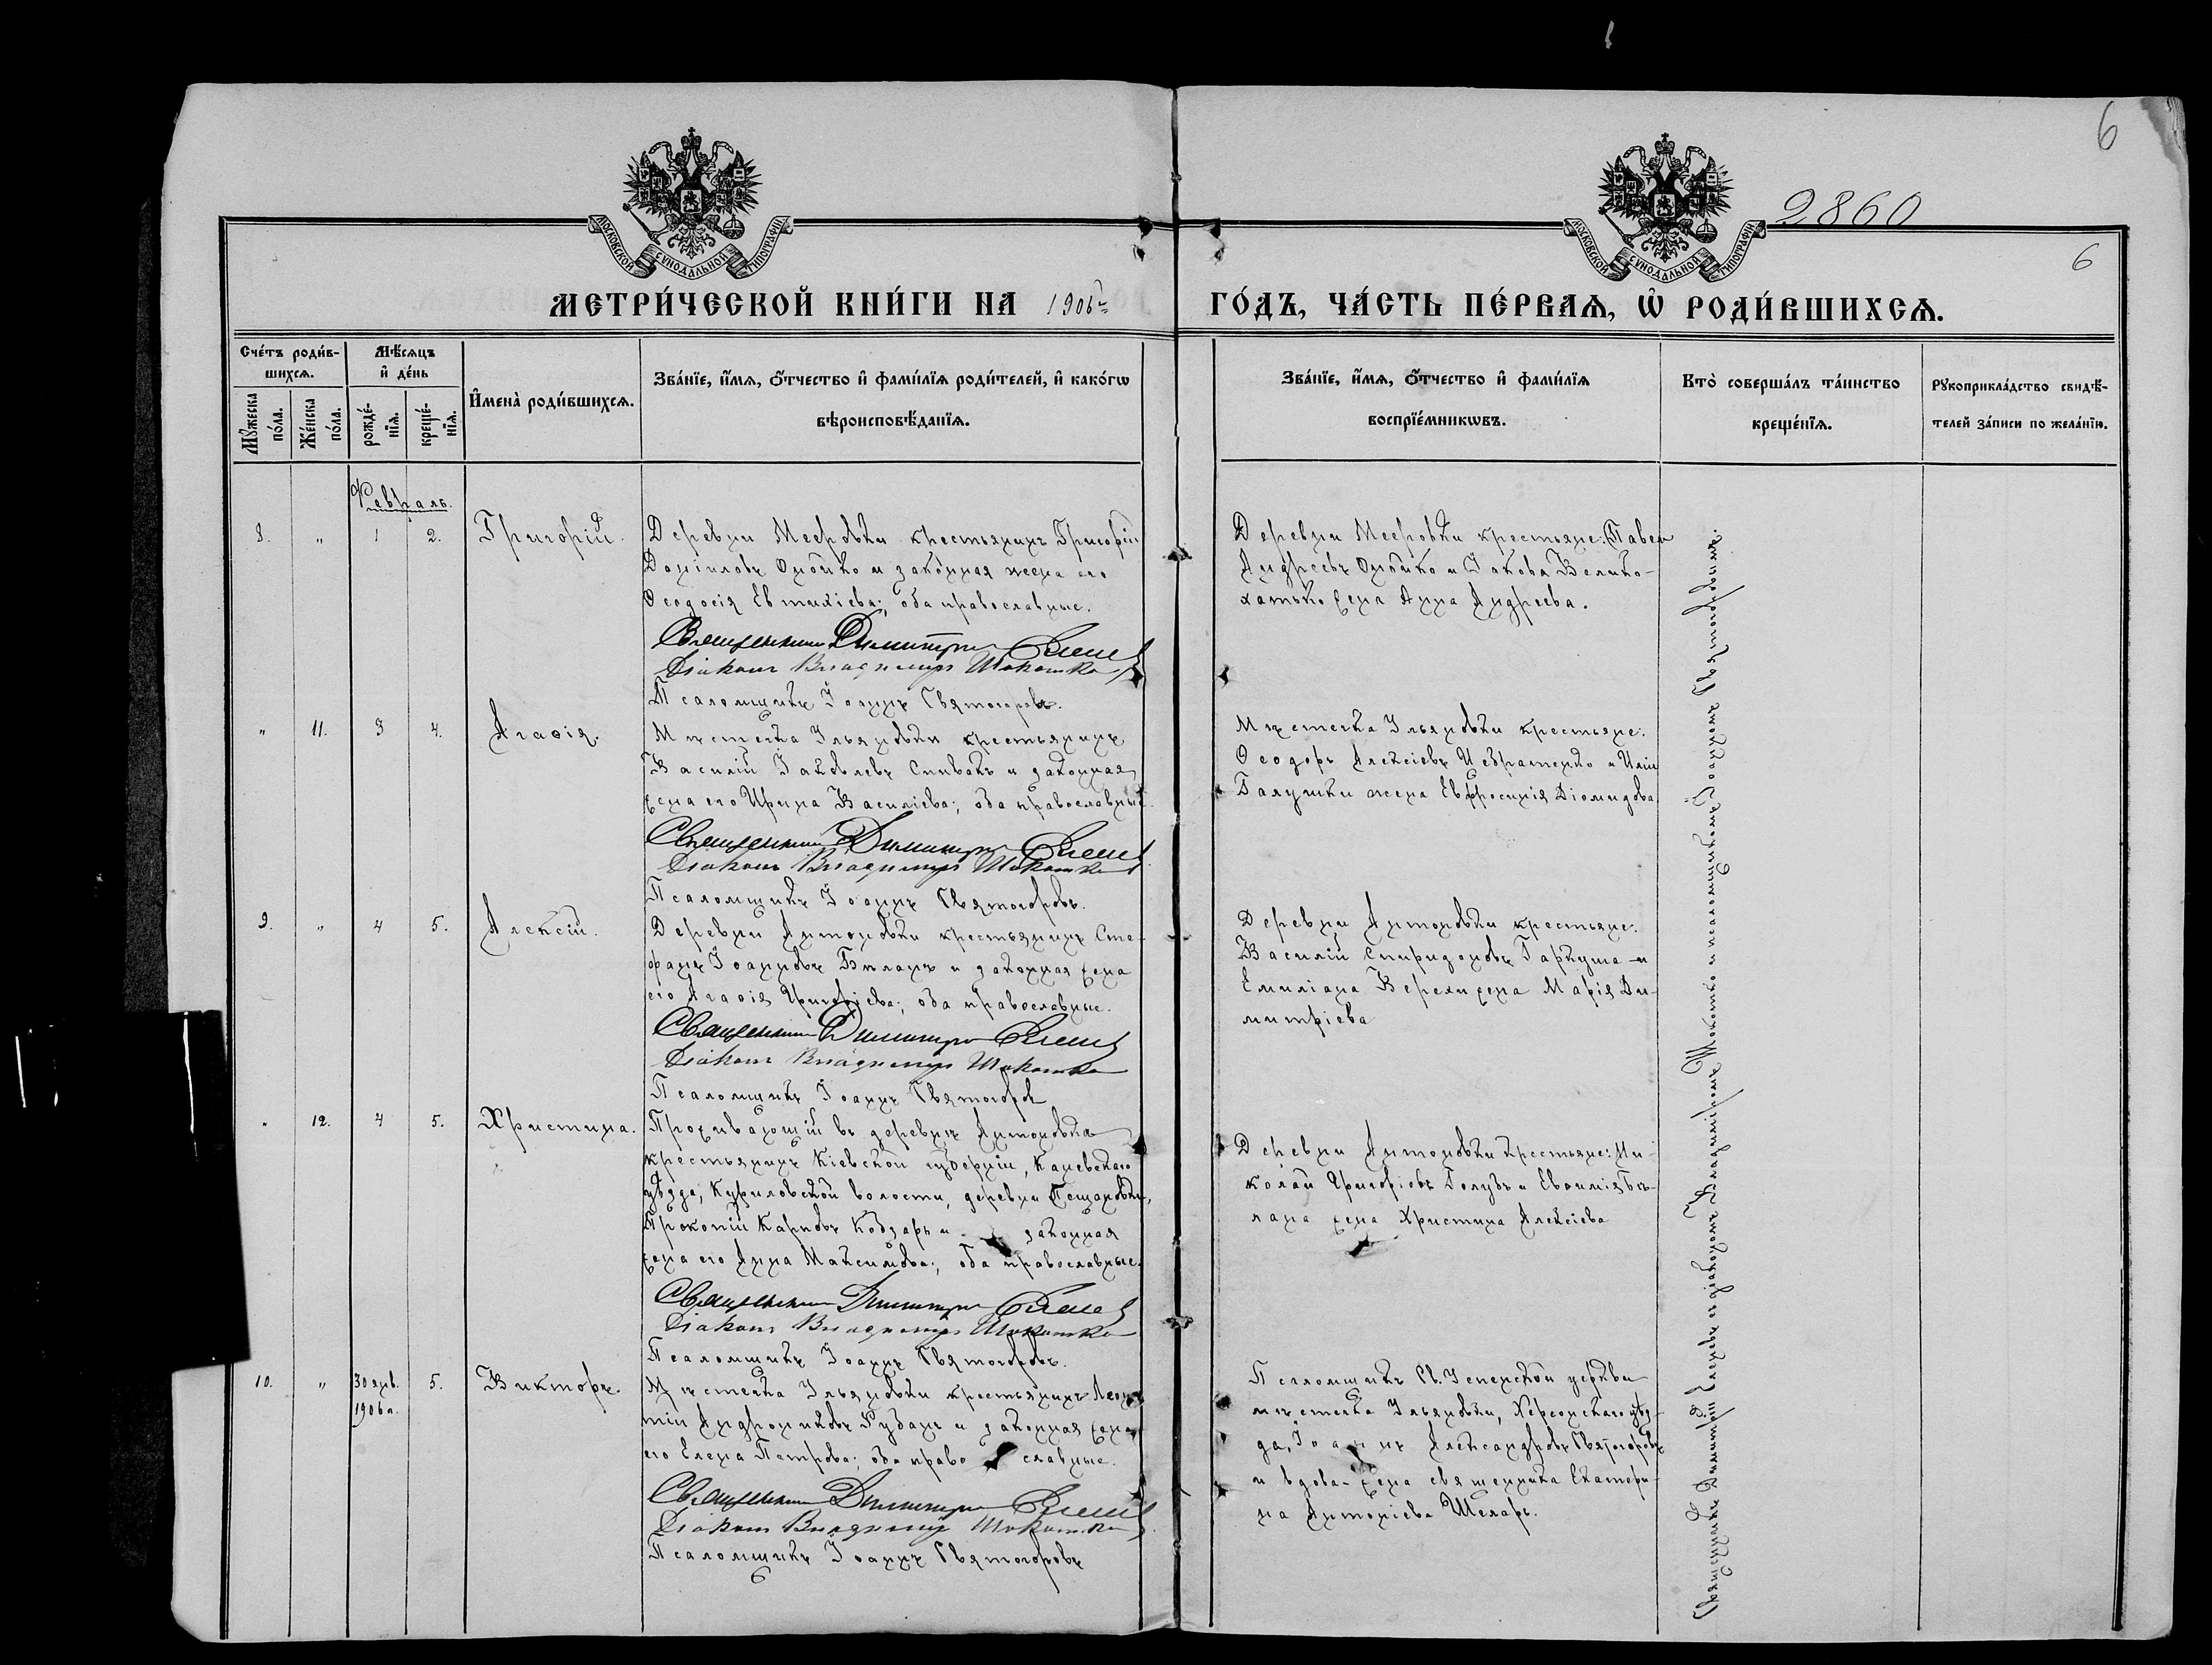 6
2860
6
МОСКОВСКОЙ СѴНОДАЛЬНОЙ ТИПОГРАФІИ
МОСКОВСКОЙ СѴНОДАЛЬНОЙ ТИПОГРАФІИ
МЕТРИ́ЧЕСКОЙ КНИ́ГИ НА 1906 ГО́ДЪ, ЧА́СТЬ ПЕ́РВАЯ, Ѡ РОДИ́ВШИХСЯ.
Сче́тъ роди́в-
шихся.
Му́жеска по́ла.
Же́нска по́ла.
Мѣ́сяцъ
и де́нь
рожде́-
нїя.
креще́-
нїя.
Имена̀ роди́вшихся.
Зва́нїе, и́мя, ѻ́тчество и фами́лїя роди́телей, и како́гѡ
вѣроисповѣ́данїя.
Зва́нїе, и́мя, ѻ́тчество и фами́лїя
воспрїе́мникѡвъ.
Кто̀ соверша́лъ та́инство
креще́нїя.
Рукоприкла́дство свидѣ́-
телей за́писи по жела́нїю.
Февраль.
8. " 1 2. Григорій.
Деревни Мееровки крестьянинъ Григорій
Данiиловъ Онойко и законная жена его
Ѳеодосія Евтихіева; оба православные.
Священникъ Димитрій
Діаконъ Владимиръ Шокотко
Псаломщикъ Іоаннъ Святогоровъ.
Деревни Мееровки крестьяне: Павелъ
Андреевъ Онойко и Іакова Велико-
хатько жена Анна Андреева.
" 11. 3 4. Агаѳія.
Мѣстечка Ильяновки крестьянинъ
Василій Іаковлевъ Спивакъ и законная
жена его Ирина Василіева; оба православные.
Священникъ Димитрій
Діаконъ Владимиръ Шокотко
Псаломщикъ Іоаннъ Святогоровъ.
Мѣстечка Ильяновки крестьяне:
Ѳеодоръ Алексіевъ и Иліи
Галушки жена Евфросинія Діомидова
9. " 4 5. Алексій.
Деревни Антоновки крестьянинъ Сте-
фанъ Іоанновъ Бѣланъ и законная жена
его Агаѳія Григоріева; оба православные.
Священникъ Димитрій
Діаконъ Владимиръ Шокотко
Псаломщикъ Іоаннъ Святогоровъ
Деревни Антоновки крестьяне:
Василій Спиридоновъ Гаркуша и
Емиліана Верехи жена Марія Ди-
митріева
" 12. 4 5. Христина.
Проживающій въ деревнѣ Антоновка
крестьянинъ Кіевской губерніи, Каневскаго
уѣзда, Куриловской волости, деревни Пещановки,
Прокопій Карповъ Кобзарь и законная
жена его Анна Максимова; оба православные.
Священникъ Димитрій
Діаконъ Владимиръ Шокотко
Псаломщикъ Іоаннъ Святогоровъ.
Деревни Антоновки крестьяне: Ни-
колай Григоріевъ Голубъ и Евѳимія Бѣ-
лана жена Христина Алексіева
10. " 30 янв. 5. Викторъ.
1906 г.
Мѣстечка Ильяновки крестьянинъ Леон-
тій Андрониковъ Рубанъ и законная жена
его Елена Петрова; оба православные.
Священникъ Димитрій
Діаконъ Владимиръ Шокотко
Псаломщикъ Іоаннъ Святогоровъ
Псаломщикъ Св. Успенской церкви
мѣстечка Ильяновки, Херсонскаго уѣз-
да, Іоаннъ Александровъ Святогоровъ
и вдова жена священника Екатери-
на Антоніева Шеларь.
Священникъ Димитрій съ діакономъ Владиміромъ Шокотко и псаломщикомъ Іоанномъ Святогоровымъ.